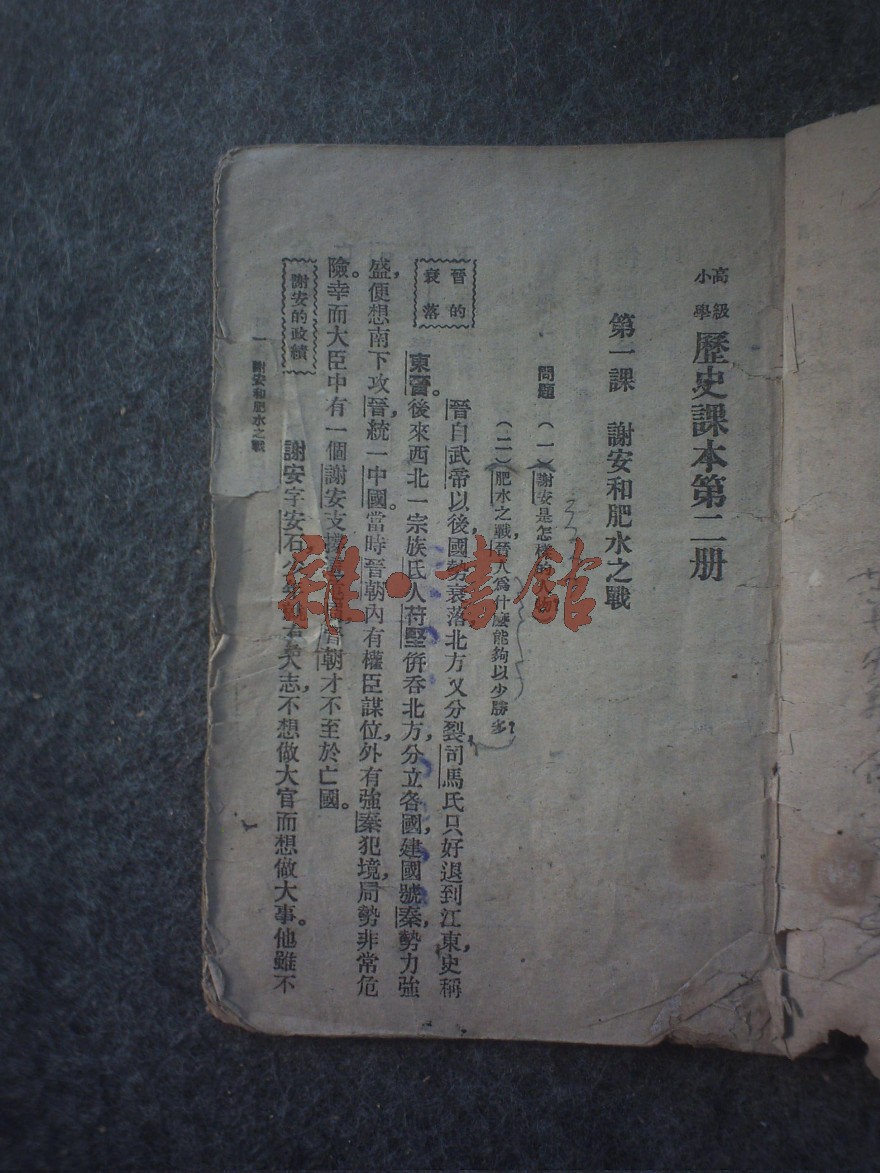 高級小學 歷史課本第二册
第一課 謝安和肥水之戰
問題 (一)謝安是怎樣
(二)肥水之戰,晉人爲什麼能夠以少勝多?
晉的衰落
晉自武帝以後,國勢衰落,北方又分裂,司馬氏只好退到江東,史稱
東晉。後來西北一宗族氐人苻堅併吞北方,分立各國,建國號秦,勢力強
盛,便想南下攻晉,統一中國。當時晉朝內有權臣謀位,外有強秦犯境,局勢非常危
險。幸而大臣中有一個謝安支 晉朝才不至於亡國。
謝安的政績
謝安字安石, 大志,不想做大官而想做大事。他雖不
一 謝安和肥水之戰
雜·書館